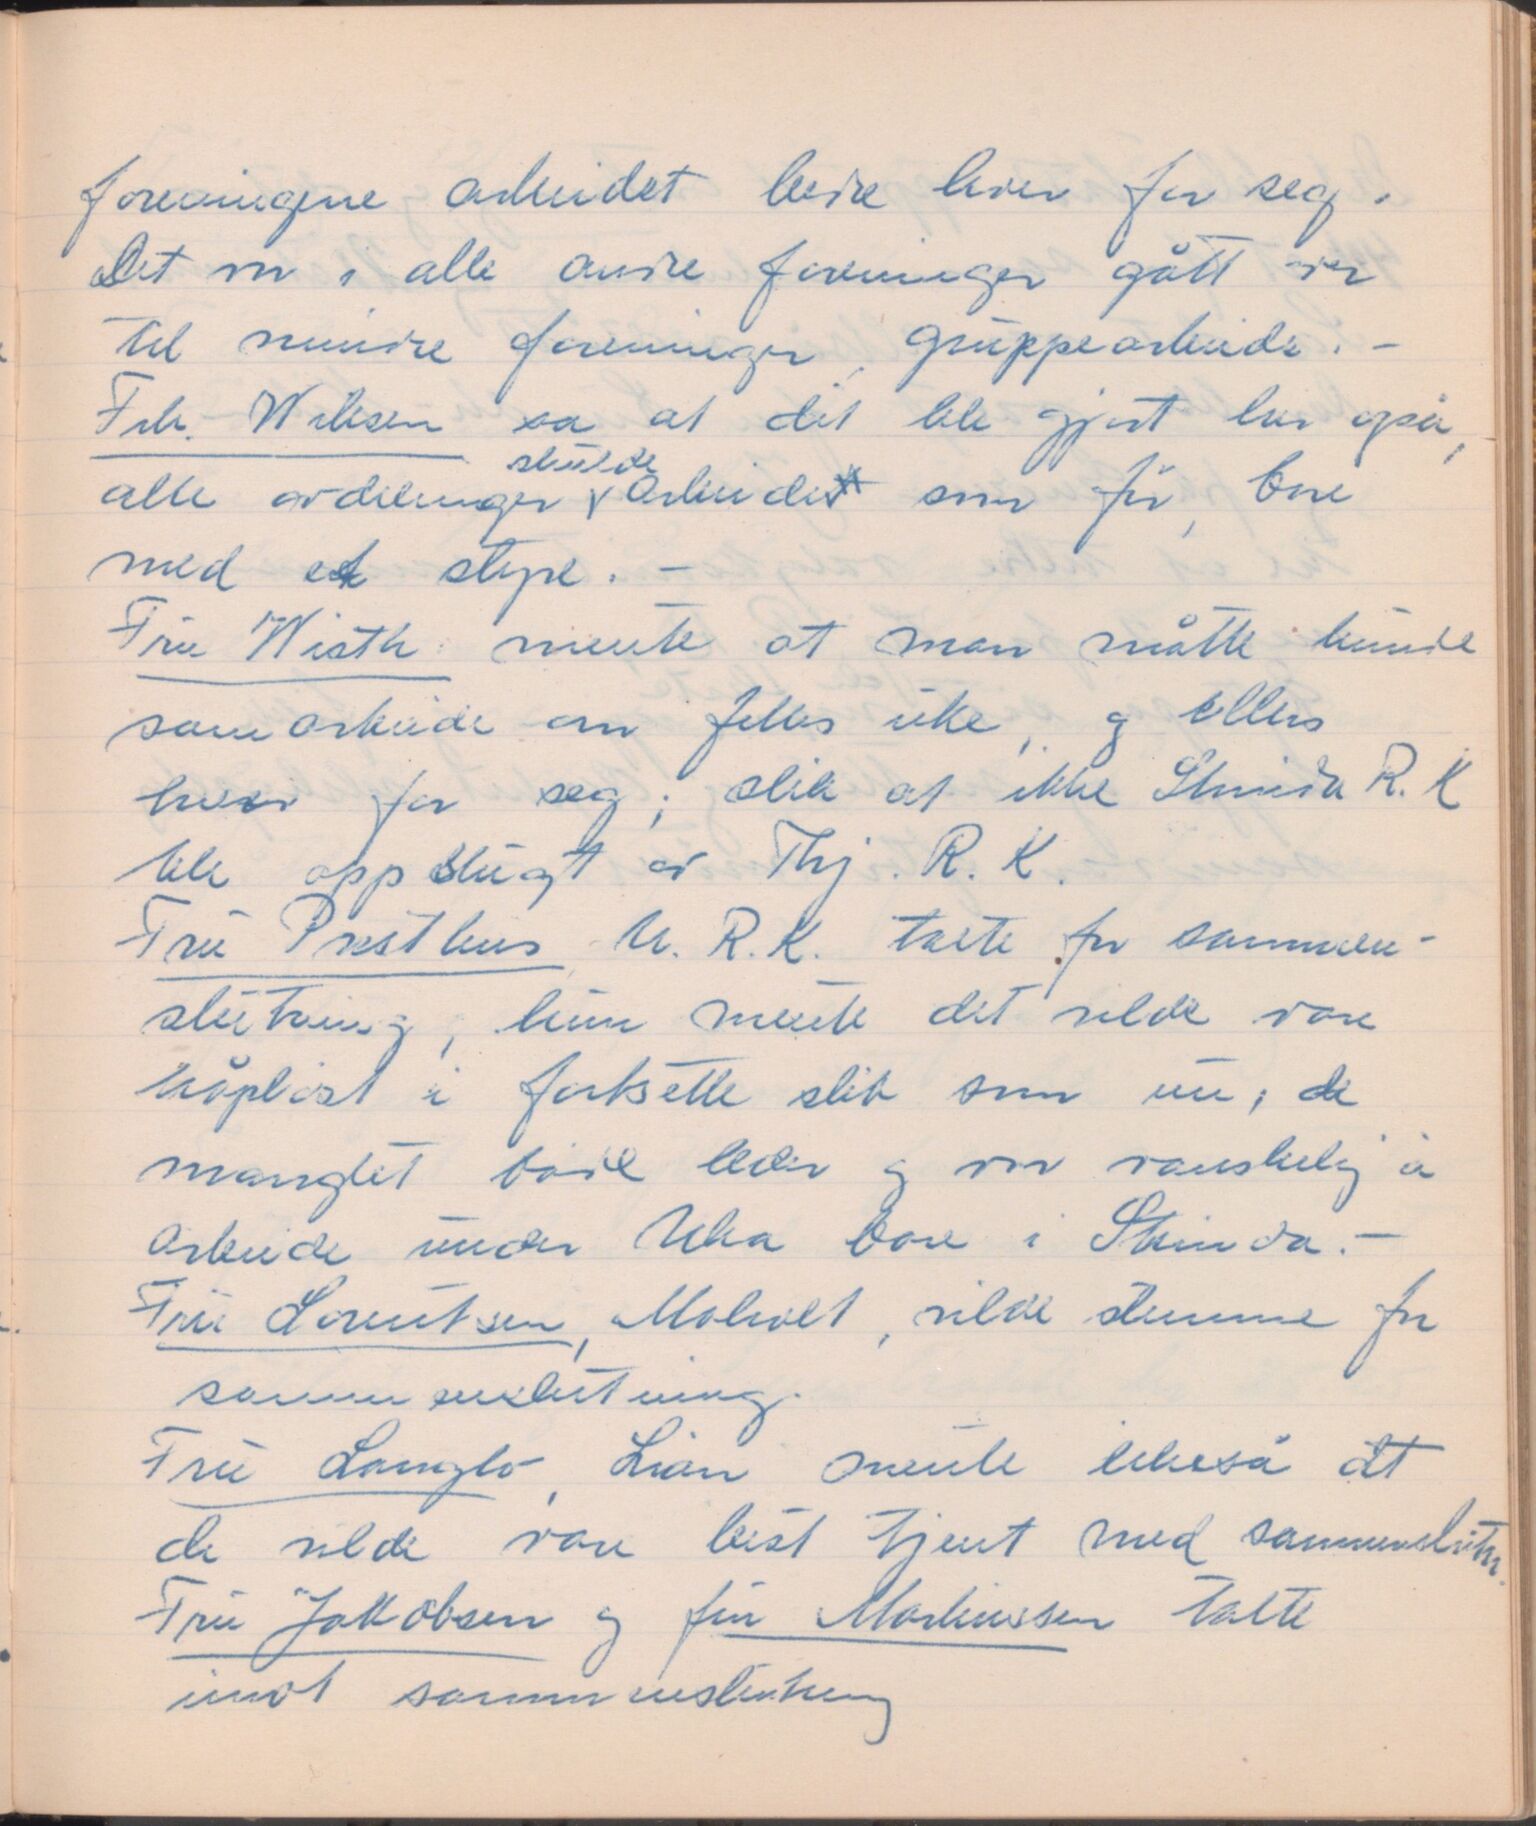 foreningene arbeidet bedre hver for seg.
Det var i alle andre foreninger gått over
til mindre foreninger, gruppearbeide. –
Frk. Wilsen sa at det ble gjort her også,
alle avdelinger skulde arbeide som før, bare
med et styre. –
Fru Wisth mente at man måtte kunde
samarbeide om felles uke, og ellers
hver for seg; slik at ikke Strinda R. K
ble oppslugt av Thj. R. K.
Fru Presthus U. R. K. talte for sammen-
slutning, hun mente det vilde være
håpløst å fortsette slik som nu; de
manglet både leder og var vanskelig å
arbeide under Uka bare i Strinda. –
Fru Lorentsen, Moholt, vilde stemme for
sammenslutning.
Fru Langlo, Lian mente likeså at
de vilde være best tjent med sammenslutn.
Fru Jakobsen og fru Martinssen talte
imot sammenslutning